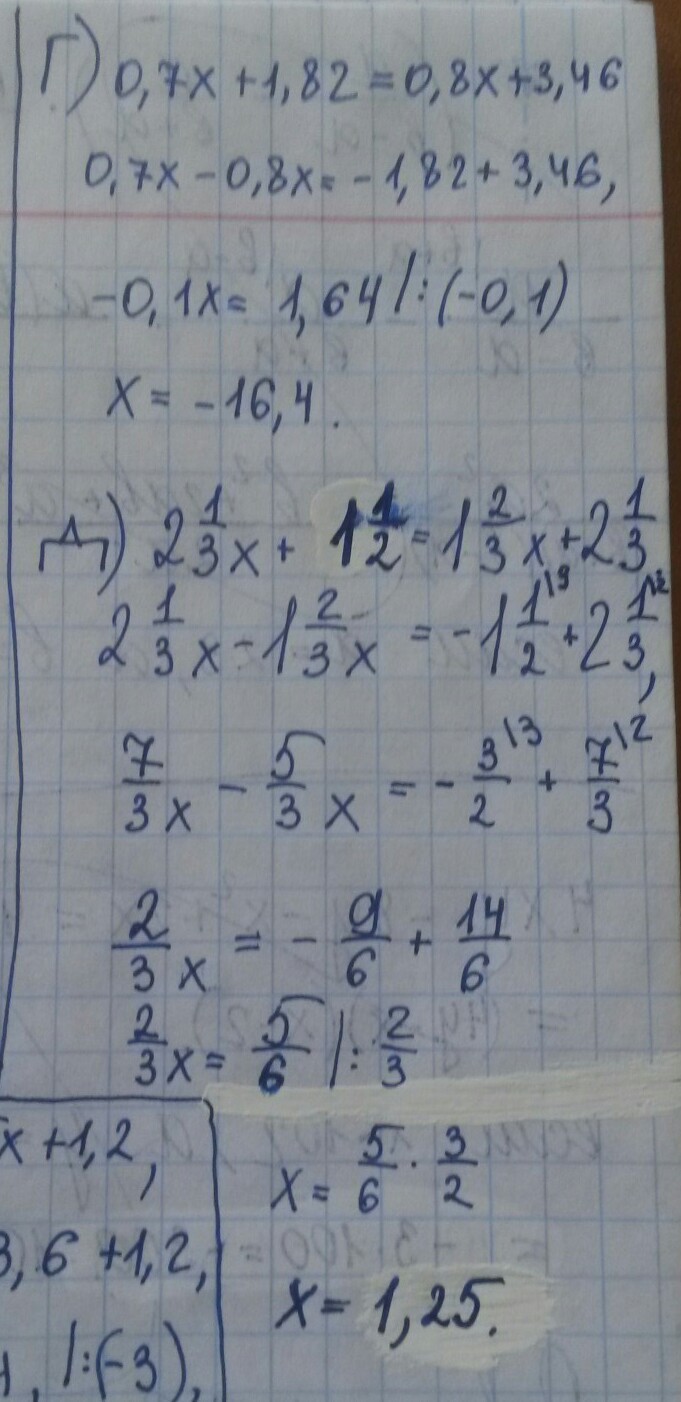 Г) 0,7x + 1,82 = 0,8x + 3,46
0,7x - 0,8x = - 1,82 + 3,46,
-0,1x = 1,64 /:(-0,1)
x = -16,4.
Д) 2 1/3 x + 1 1/2 = 1 2/3 x + 2 1/3
2 1/3 x - 1 2/3 x = - 1 1/2 \3 + 2 1/3 \2,
7/3 x - 5/3 x = - 3/2 \3 + 7/3 \2
2/3 x = - 9/6 + 14/6
2/3 x = 5/6 /: 2/3
x = 5/6 · 3/2
x = 1,25.
x + 1,2,
3,6 + 1,2,
/:(-3),